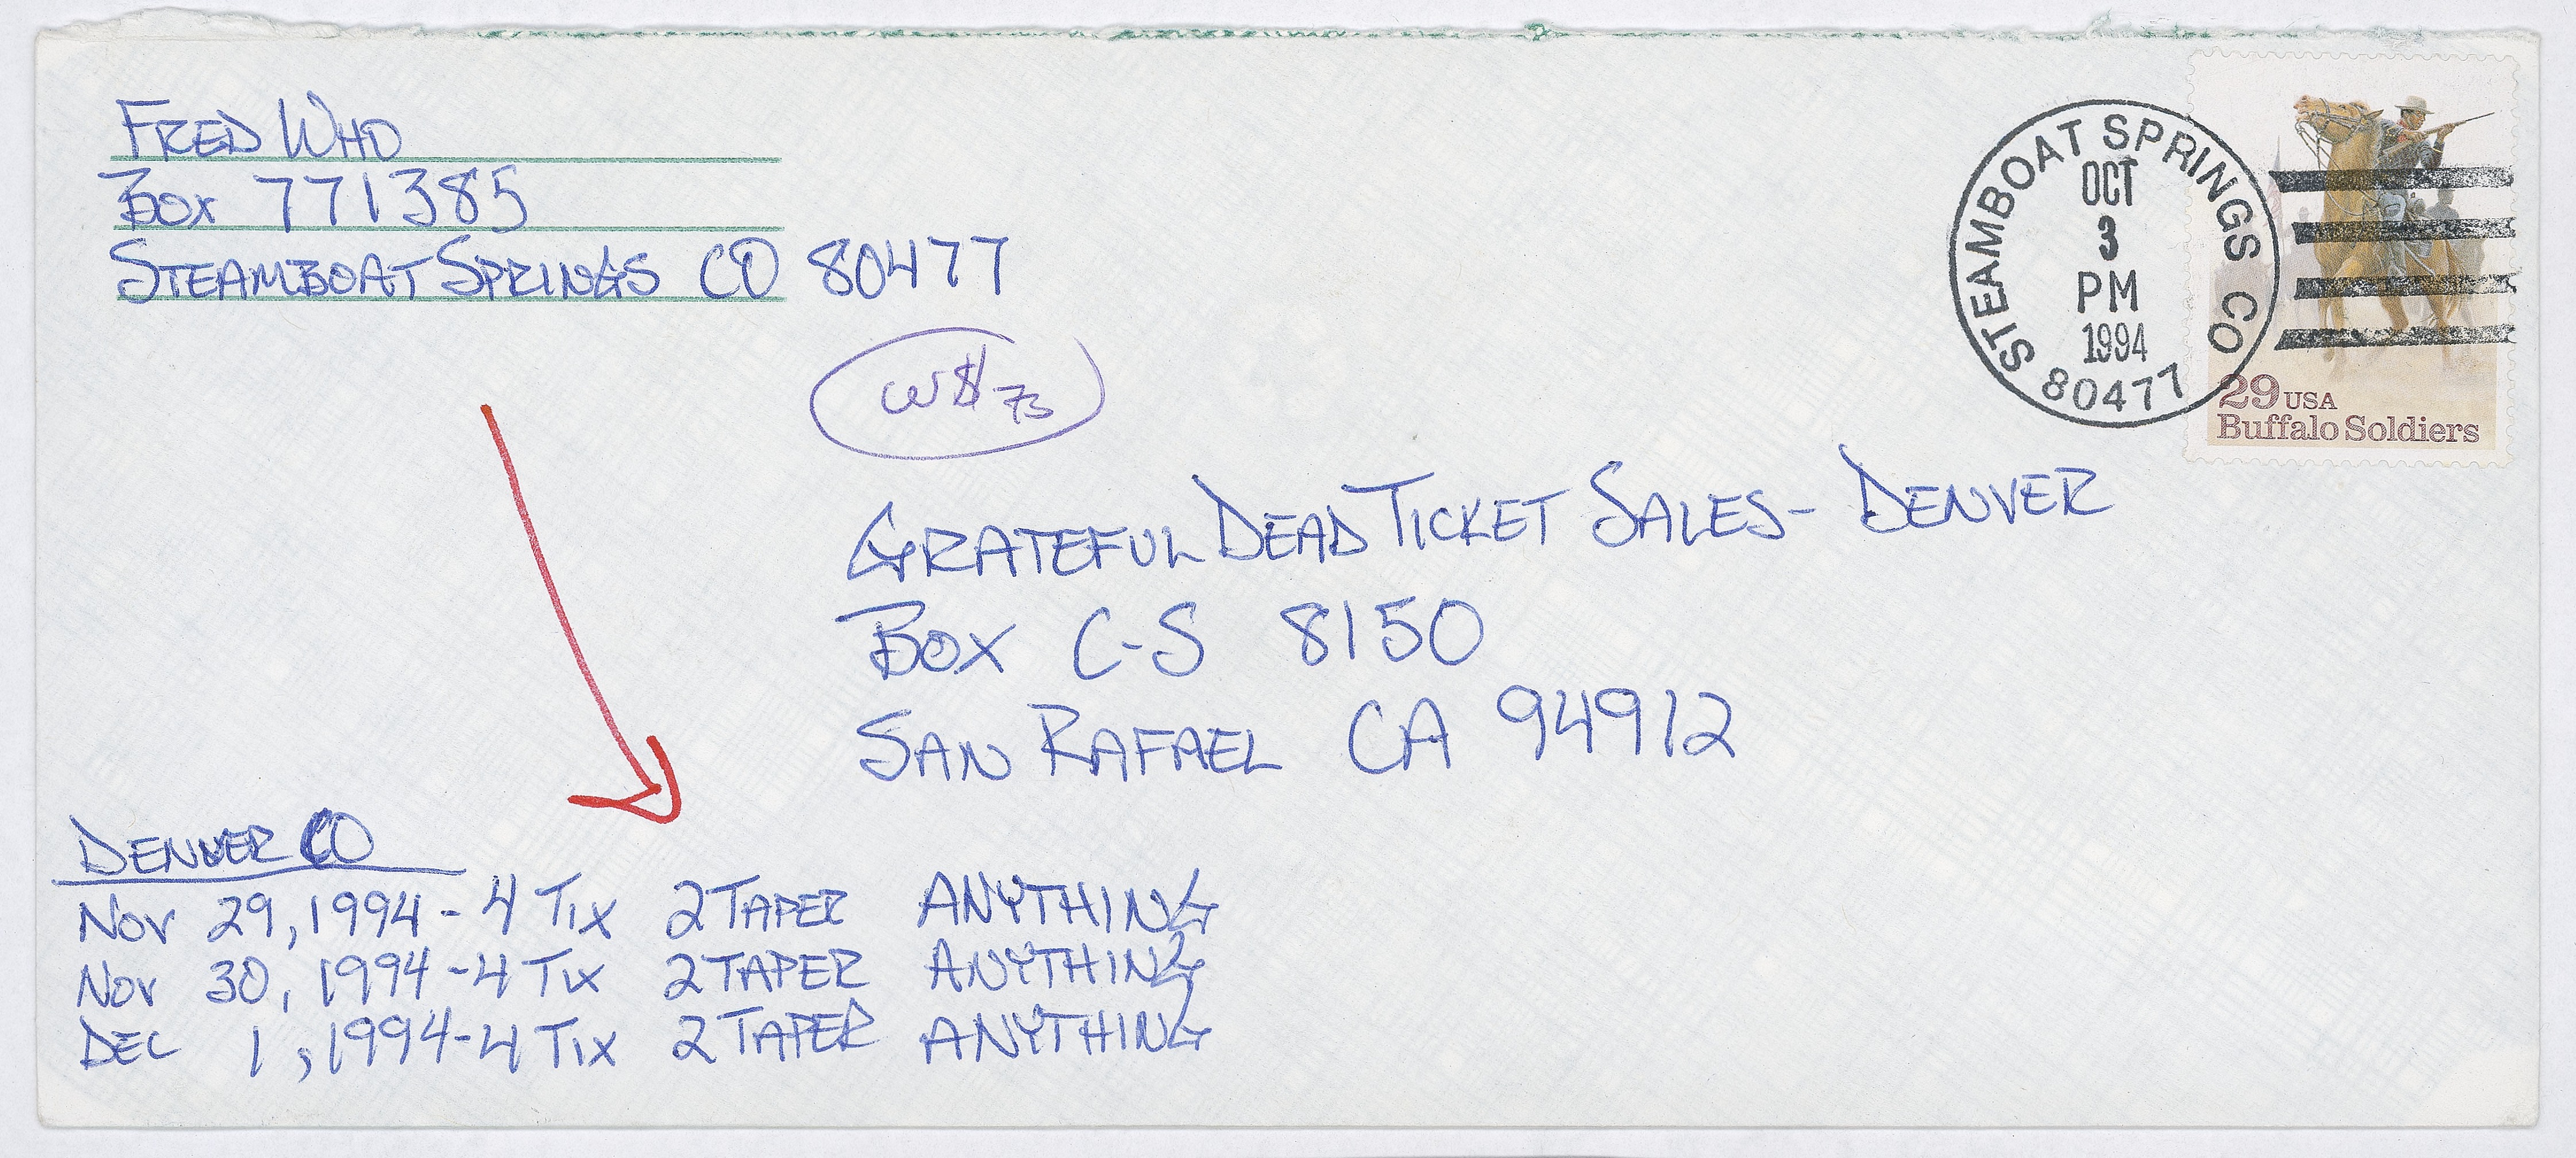 FRED WHO
BOX 771385
STEAMBOAT SPRINGS CO 80477
STEAMBOAT SPRINGS CO
OCT
3
PM
1994
80477
29 USA
Buffalo Soldiers
W$ 73
GRATEFUL DEAD TICKET SALES - DENVER
BOX C-S 8150
SAN RAFAEL CA 94912
DENVER CO
NOV 29, 1994 - 4 TIX 2 TAPER ANYTHING
NOV 30, 1994 - 4 TIX 2 TAPER ANYTHING
DEC 1, 1994 - 4 TIX 2 TAPER ANYTHING